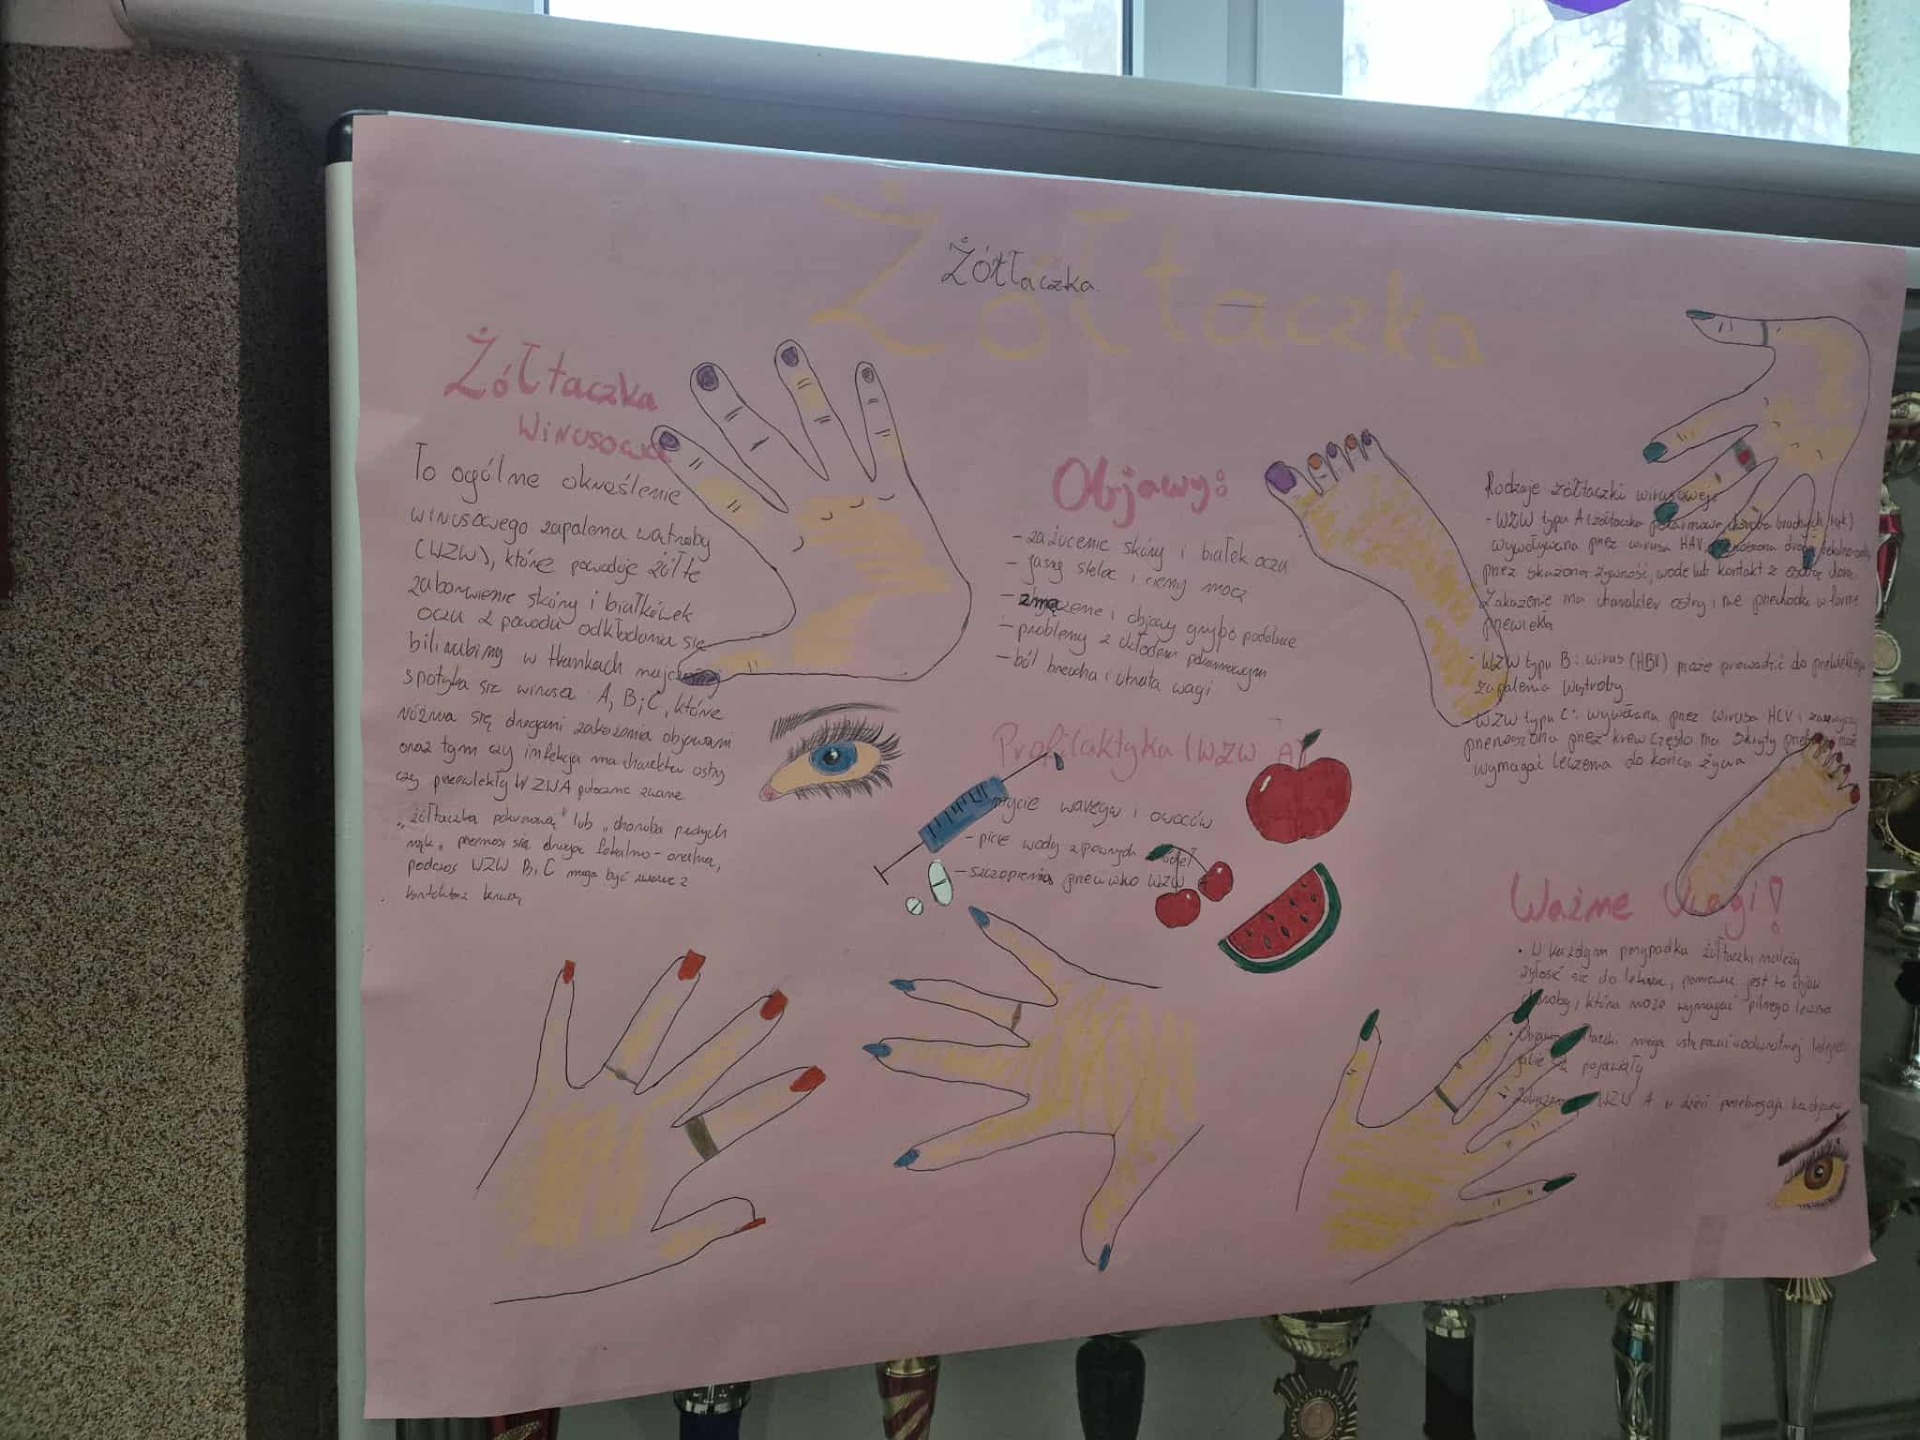 Żółtaczka
Żółtaczka.
Żółtaczka
Wirusowa
To ogólne określenie
wirusowego zapalenia wątroby
(WZW), które powoduje żółte
zabarwienie skóry i białkówek
oczu z powodu odkładania się
bilirubiny w tkankach najczęściej
spotyka się wirusa A, B i C, które
różnią się drogami zakażenia objawami
oraz tym czy infekcja ma charakter ostry
czy przewlekły WZWA potocznie zwane
"żółtaczką pokarmową" lub "choroba brudnych
rąk" przenosi się drogą fekalno-oralną,
podczas WZW B i C mogą być zwane z
kontaktem krwią
Objawy:
- zażócenie skóry i białek oczu
- jasny stolec i ciemny mocz
- zmęczenie i objawy grypo podobne
- problemy z układem pokarmowym
- ból brzucha i utrata wagi
Profilaktyka (WZW A)
- mycie warzyw i owoców
- picie wody z pewnych źródeł
- szczepienia przeciwko WZW
Rodzaje żółtaczki wirusowej:
- WZW typu A (żółtaczka pokarmowa, choroba brudnych rąk)
wywoływana przez wirusa HAV, przenoszona drogą fekalno-oralną
przez skażoną żywność, wodę lub kontakt z osobą chorą.
Zakażenie ma charakter ostry i nie przechodzi w formę
przewlekłą
- WZW typu B: wirus (HBV) może prowadzić do przewlekłego
zapalenia wątroby
WZW typu C: wywołana przez wirusa HCV i zazwyczaj
przenoszona przez krew Często ma skryty przebieg i może
wymagać leczenia do końca życia
Ważne Uwagi!
• W każdym przypadku żółtaczki należy
zgłosić się do lekarza, ponieważ jest to objaw
choroby, która może wymagać pilnego leczenia
• Objawy żółtaczki mogą ustępować w odwrotnej kolejności
jakie się pojawiały
• Zakażenie WZW A u dzieci przebiegają bezobjawowo